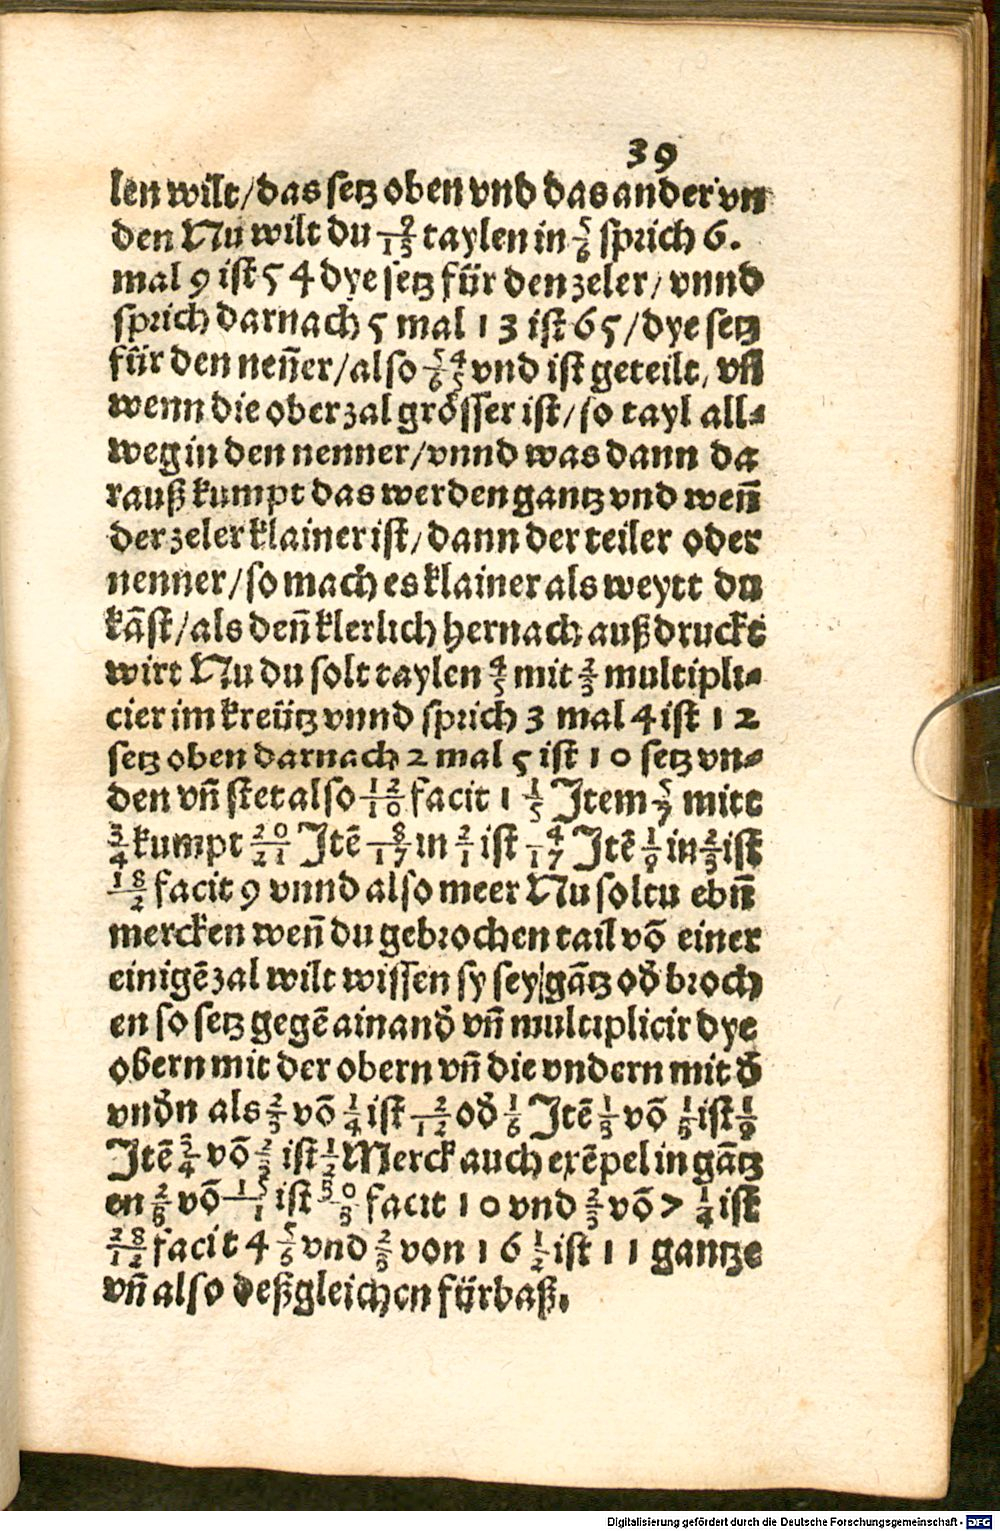 39
len wilt/das setz oben vnd das ander vn
den Nu wilt du 9/13 taylen in 5/6 sprich 6.
mal 9 ist 54 dye setz für den zeler/ vnnd
sprich darnach 5 mal 13 ist 65/dye setz
für den neñer/also 54/65 vnd ist geteilt, vñ
wenn die ober zal grösser ist/so tayl all-
weg in den nenner/vnnd was dann da
rauß kumpt das werden gantz vnd weñ
der zeler klainer ist/dann der teiler oder
nenner/so mach es klainer als weytt du
kãst/als deñ klerlich hernach außdruckt
wirt Nu du solt taylen 4/5 mit 2/3 multipli-
cier im kreütz vnnd sprich 3 mal 4 ist 12
setz oben darnach 2 mal 5 ist 10 setz vn-
den vñ stet also 12/10 facit 1 1/5 Jtem 5/7 mitt
3/4 kumpt 20/21 Jtẽ 8/17 in 2/1 ist 4/17 Jtẽ 1/9 in 2/3 ist
18/2 facit 9 vnnd also meer Nu soltu ebñ
mercken weñ du gebrochen tail võ einer
einigẽ zal wilt wissen sy sey/gãtz oď broch
en so setz gegẽ ainanď vñ multiplicir dye
obern mit der obern vñ die vndern mit ď
vnďn als 2/3 võ 1/4 ist 2/12 oď 1/6 Jtẽ 1/3 võ 1/3 ist 1/9
Jtẽ 3/4 võ 2/3 ist 1/2 Merck auch exẽpel in gãtz
en 2/3 võ 15/1 ist 30/3 facit 10 vnd 2/3 võ 7 1/4 ist
28/12 facit 4 5/6 vnd 2/3 von 16 1/2 ist 11 gantze
vñ also deßgleichen fürbaß.
Digitalisierung gefördert durch die Deutsche Forschungsgemeinschaft - DFG